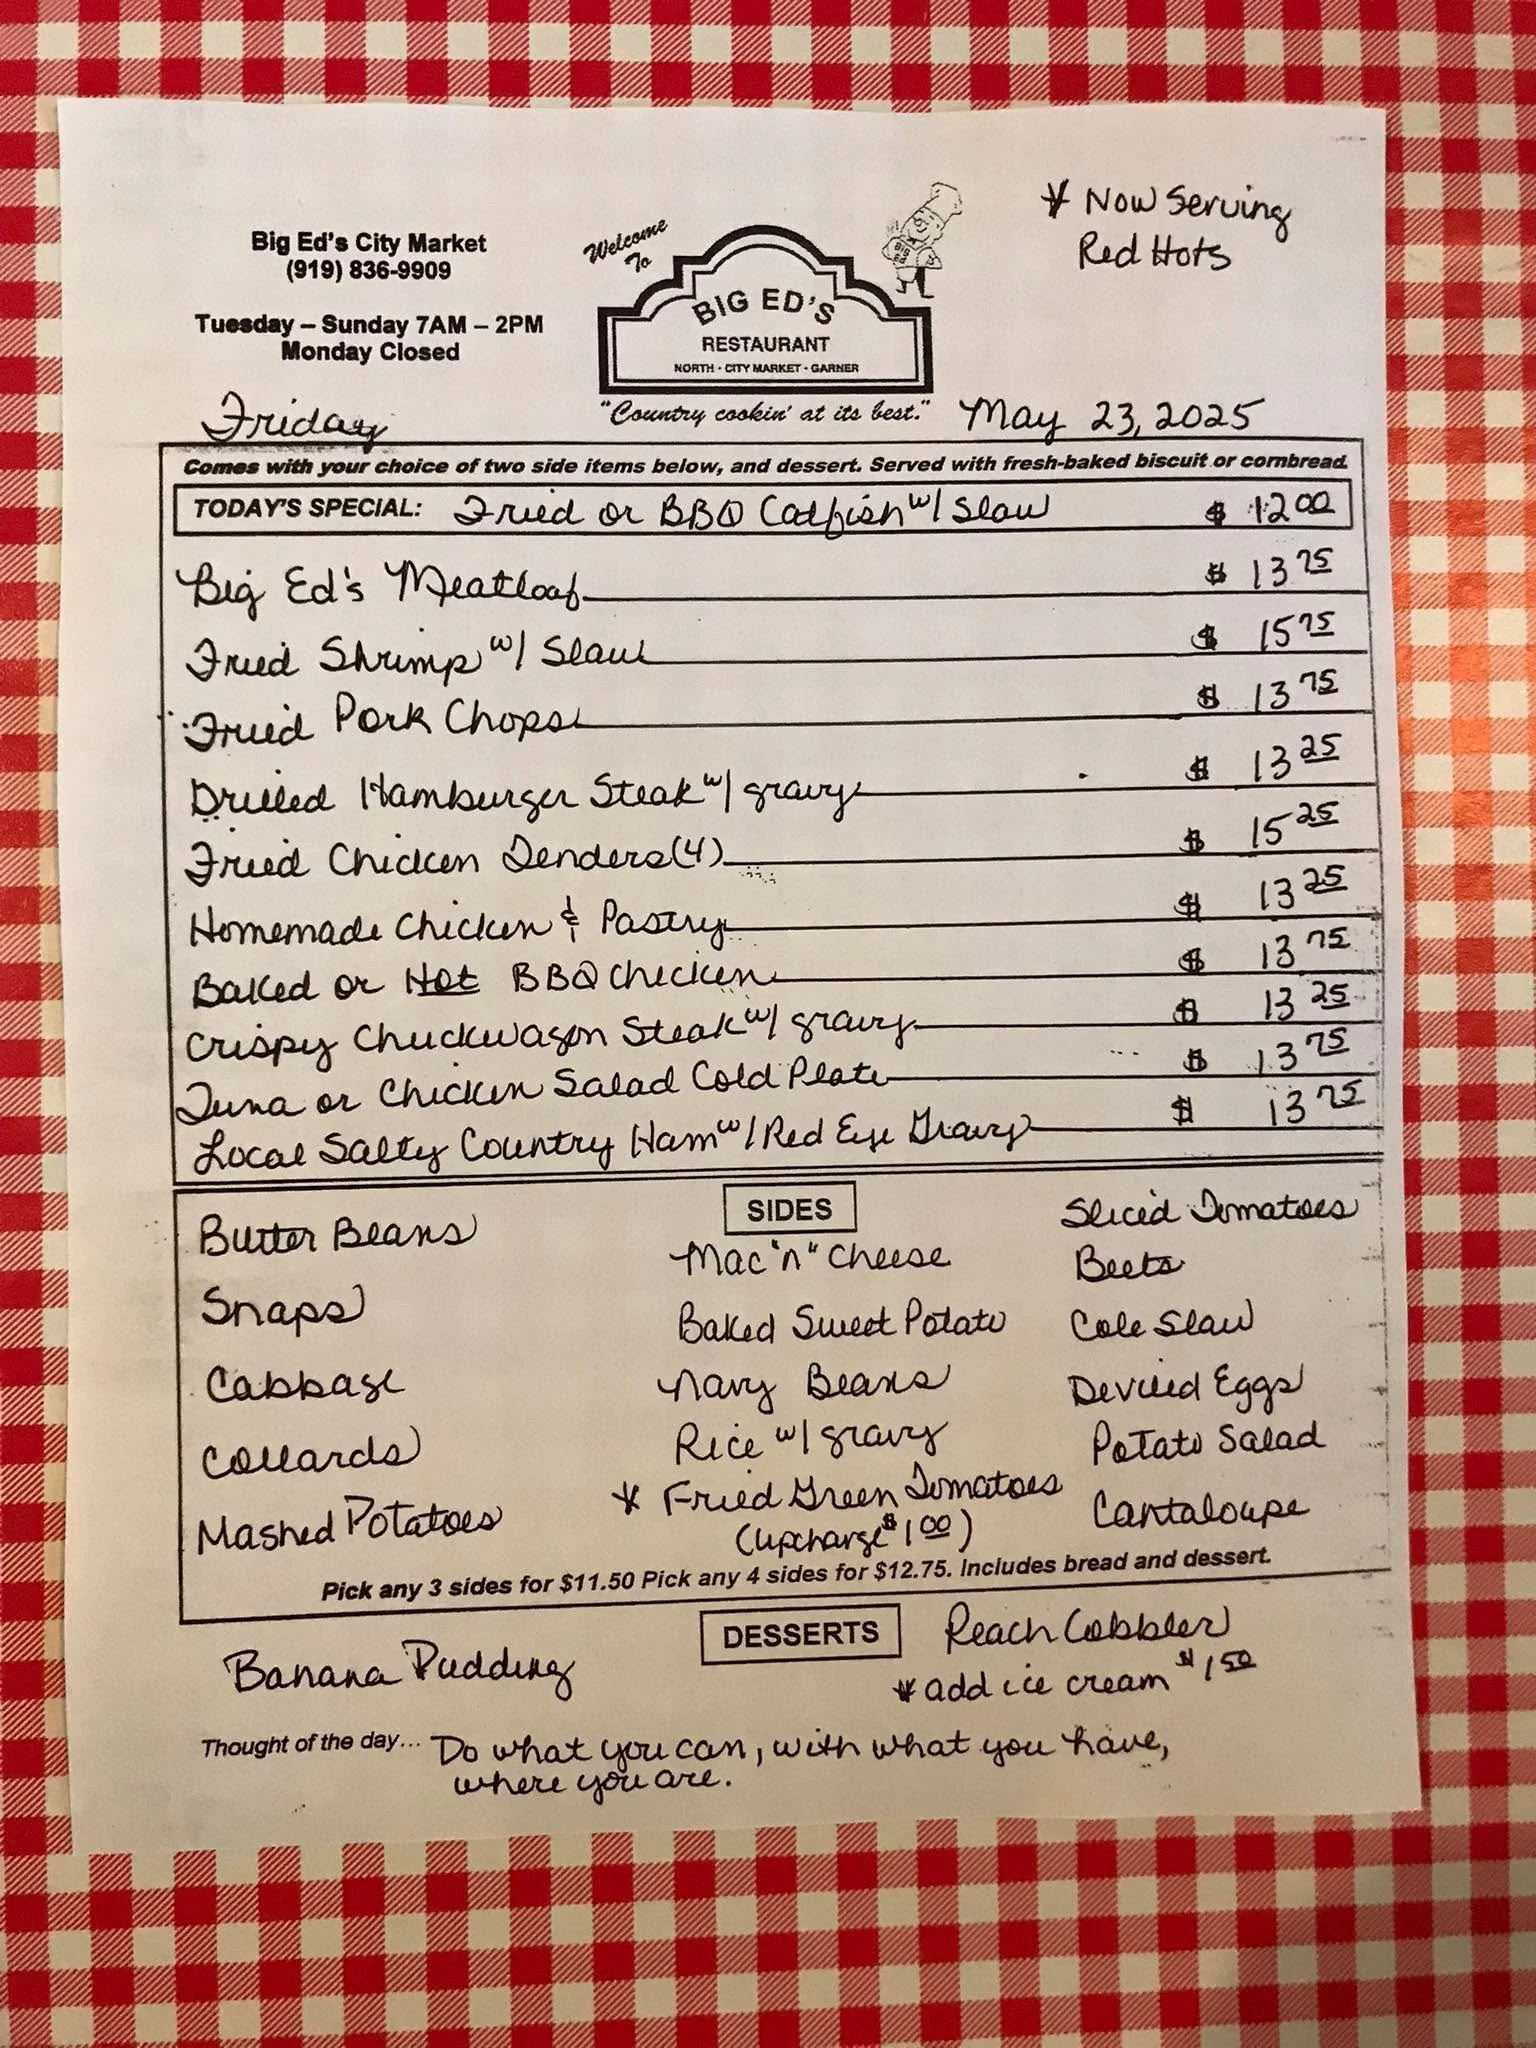 Big Ed's City Market
(919) 836-9909
Tuesday – Sunday 7AM – 2PM
Monday Closed
Welcome
To
BIG ED'S
RESTAURANT
NORTH · CITY MARKET · GARNER
"Country cookin' at its best."
* Now Serving
Red Hots
Friday
May 23, 2025
Comes with your choice of two side items below, and dessert. Served with fresh-baked biscuit or cornbread.
TODAY'S SPECIAL: Fried or BBQ Catfish w/ Slaw $ 12 00
Big Ed's Meatloaf $ 13 75
Fried Shrimp w/ Slaw $ 15 75
Fried Pork Chops $ 13 75
Drilled Hamburger Steak w/ gravy $ 13 25
Fried Chicken Tenders (4) $ 15 25
Homemade Chicken & Pastry $ 13 25
Baked or Hot BBQ Chicken $ 13 75
Crispy Chuckwagon Steak w/ gravy $ 13 25
Tuna or Chicken Salad Cold Plate $ 13 75
Local Salty Country Ham w/ Red Eye Gravy $ 13 75
SIDES
Butter Beans
Snaps
Cabbage
Collards
Mashed Potatoes
Mac "n" Cheese
Baked Sweet Potato
Navy Beans
Rice w/ gravy
* Fried Green Tomatoes
(upcharge $1 00)
Sliced Tomatoes
Beets
Cole Slaw
Deviled Eggs
Potato Salad
Cantaloupe
Pick any 3 sides for $11.50 Pick any 4 sides for $12.75. Includes bread and dessert.
DESSERTS
Banana Pudding
Peach Cobbler
* add ice cream $1 50
Thought of the day... Do what you can, with what you have,
where you are.